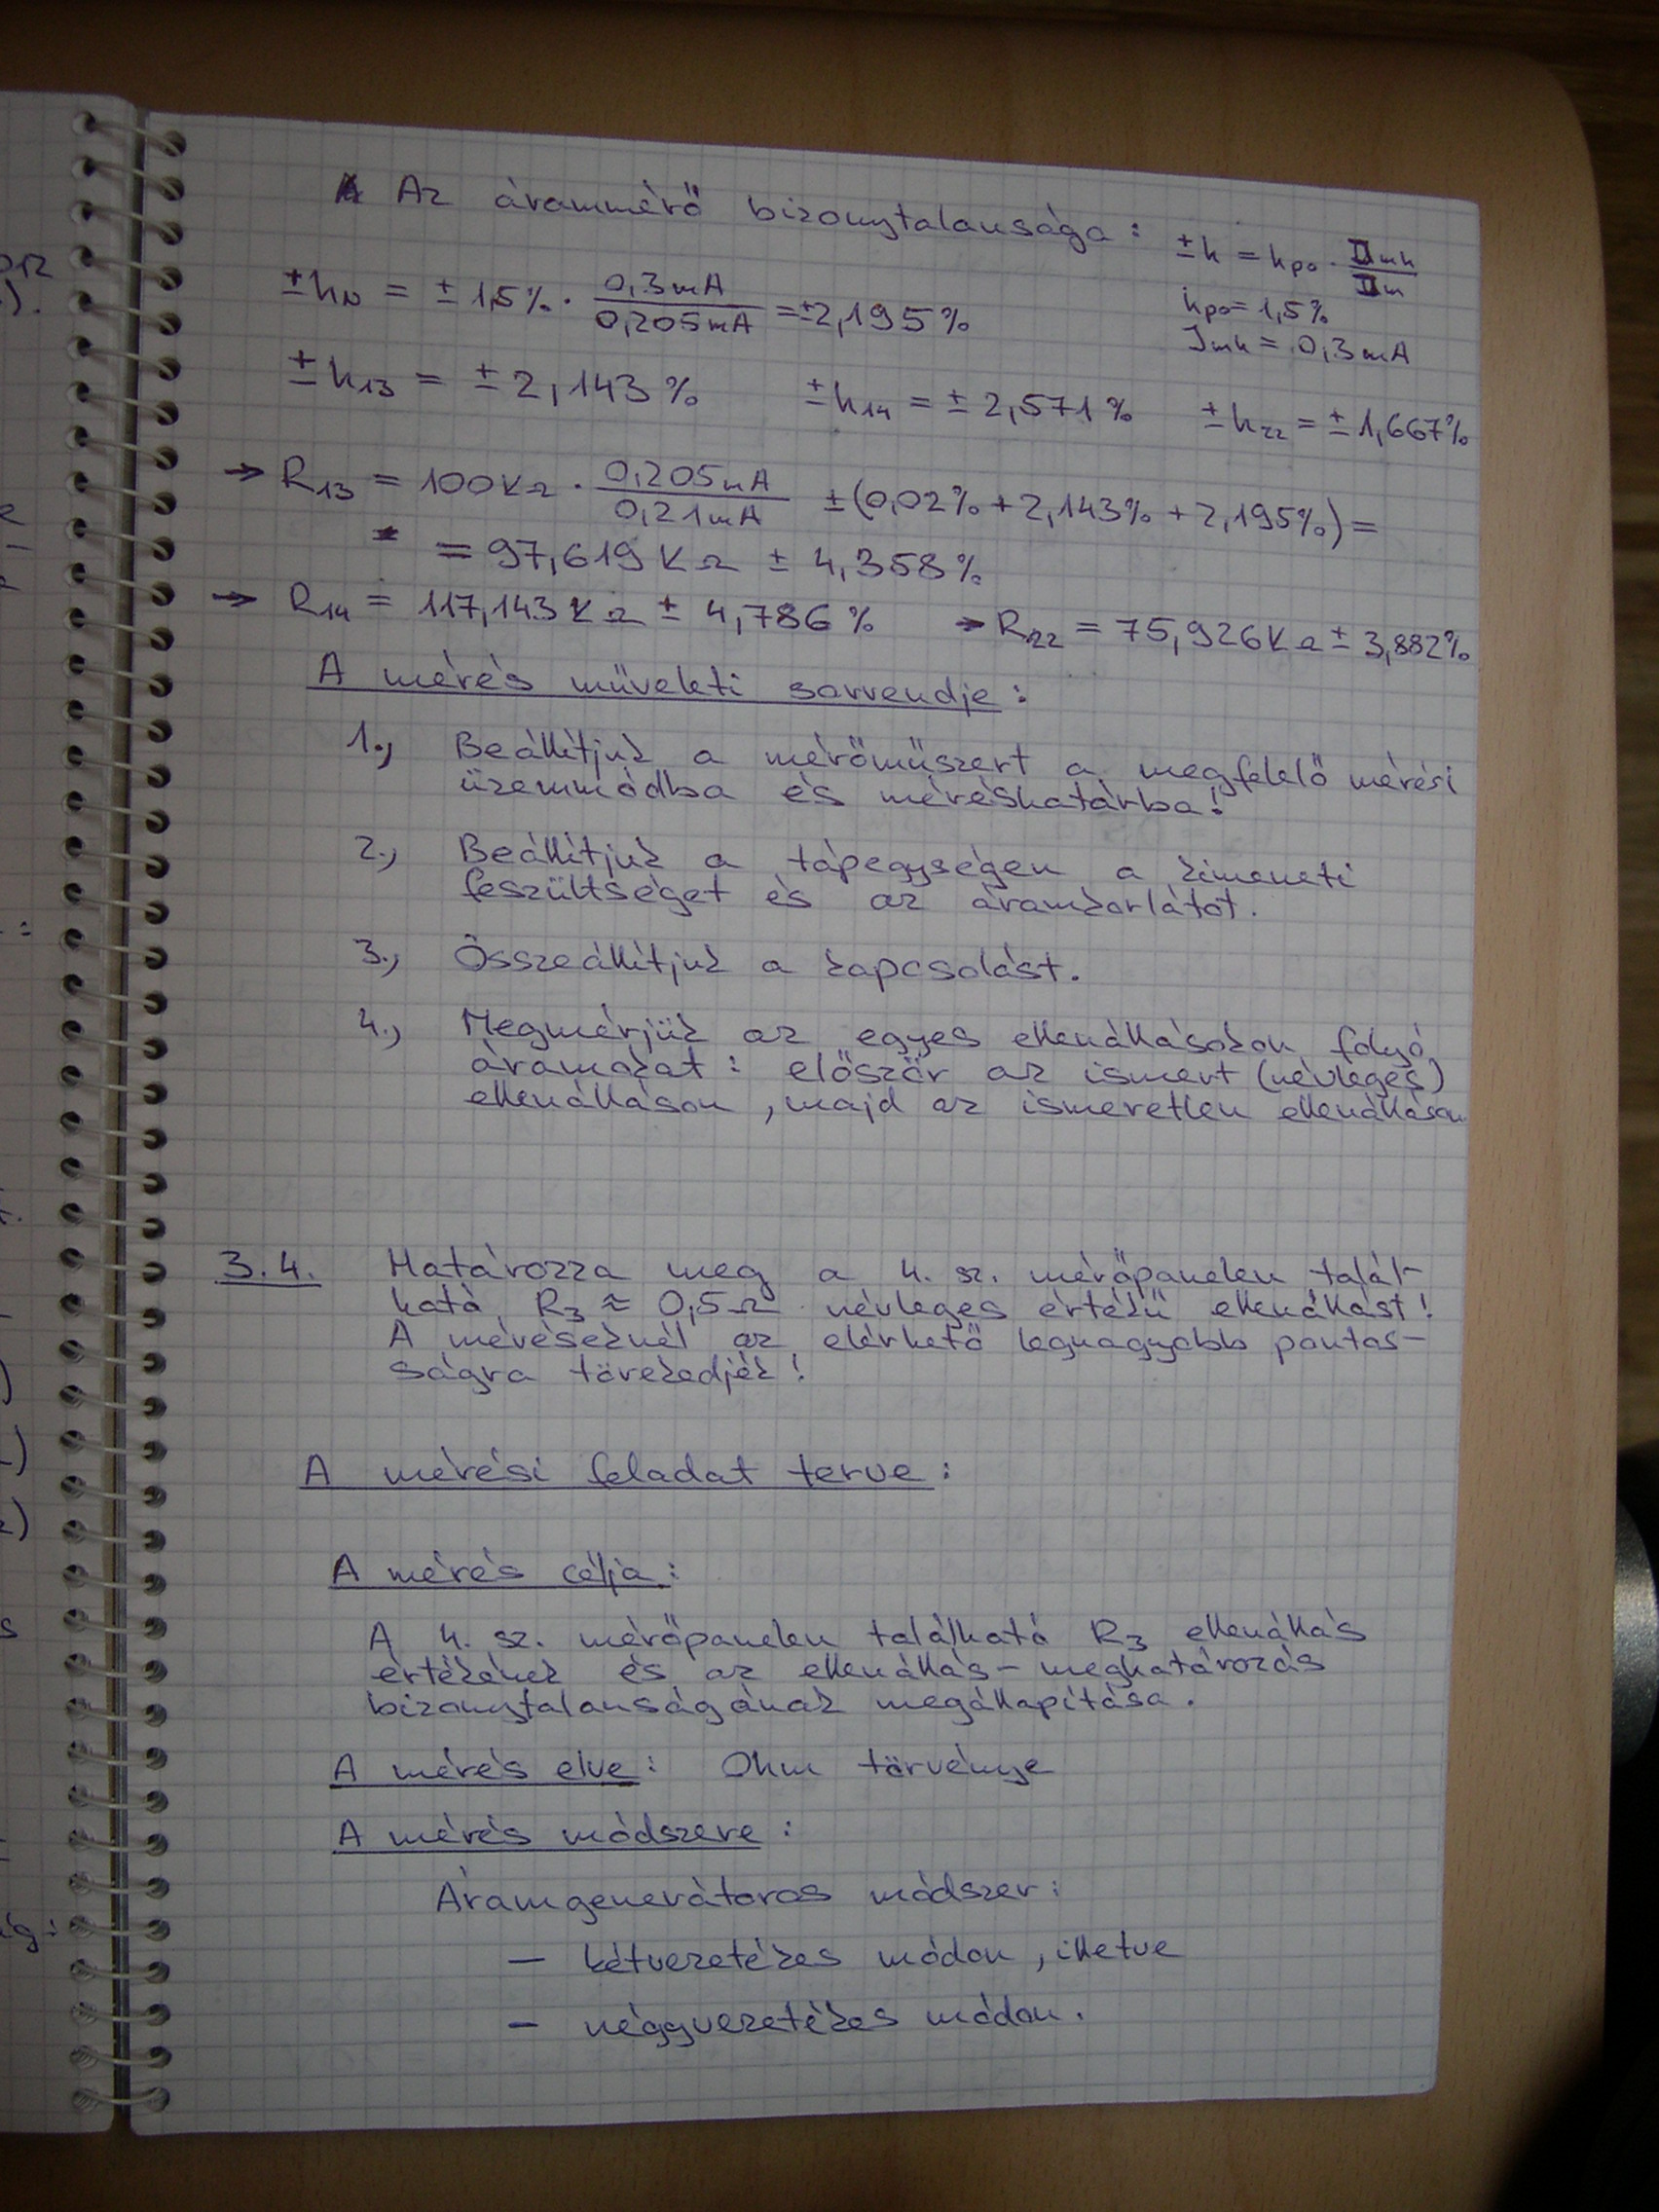 Az árammérő bizonytalansága: ±h = hpo · Imh / Im
±hN = ±1,5% · 0,3mA / 0,205mA = ±2,195%
hpo = 1,5%
Imh = 0,3mA
±h13 = ±2,143% ±h14 = ±2,571% ±h22 = ±1,667%
→ R13 = 100KΩ · 0,205mA / 0,21mA ±(0,02% + 2,143% + 2,195%) =
= 97,619KΩ ± 4,358%
→ R14 = 117,143KΩ ± 4,786% → R22 = 75,926KΩ ± 3,882%
A mérés műveleti sorrendje:
1., Beállítjuk a mérőműszert a megfelelő mérési
üzemmódba és méréshatárba!
2., Beállítjuk a tápegységen a kimeneti
feszültséget és az áramkorlátot.
3., Összeállítjuk a kapcsolást.
4., Megmérjük az egyes ellenállásokon folyó
áramokat: először az ismert (névleges)
ellenálláson, majd az ismeretlen ellenálláson
3.4. Határozza meg a 4. sz. mérőpanelen talál-
ható R3 ≈ 0,5Ω névleges értékű ellenállást!
A méréseknél az elérhető legnagyobb pontos-
ságra törekedjék!
A mérési feladat terve:
A mérés célja:
A 4. sz. mérőpanelen található R3 ellenállás
értékének és az ellenállás-meghatározás
bizonytalanságának megállapítása.
A mérés elve: Ohm törvénye
A mérés módszere:
Áramgenerátoros módszer:
– kétvezetékes módon, illetve
– négyvezetékes módon.